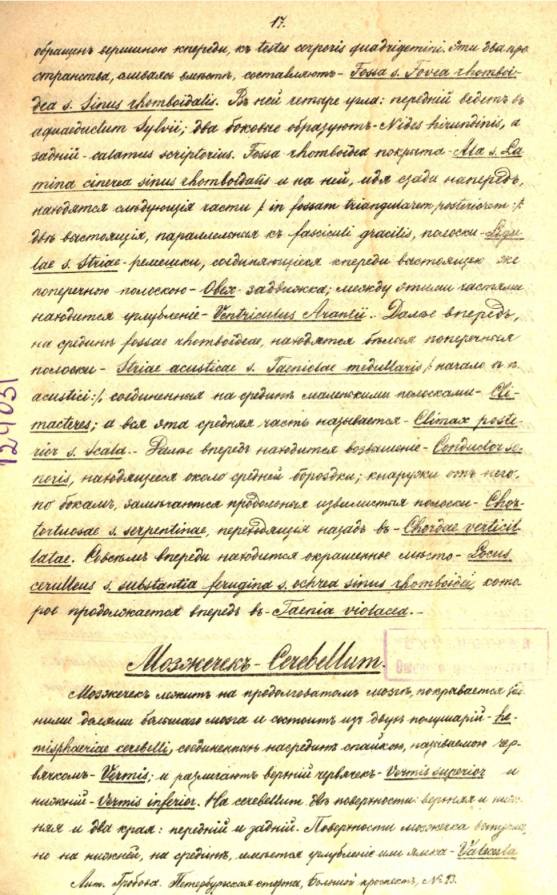 17.
обращенъ вершиною кпереди, къ testes corporis quadrigemini. Эти два про
странства, сливаясь вмѣстѣ, составляютъ - Fossa s. Fovea rhomboi-
dea s. Sinus rhomboidalis. Въ ней четыре угла: передній ведетъ въ
aquaeductum Sylvii; два боковые образуютъ - Nides hirundinis, а
задній - calamus scriptorius. Fossa rhomboidea покрыта - Ala s. La
mina cinerea sinus rhomboidalis и на ней, идя сзади напередъ,
находятся слѣдующія части /: in fossam triangularem posteriorem :/
двѣ паралл��льныя къ fasciculi gracilis, полоски - Ligu
lae s. Striae - ремешки, соединяющіеся кпереди же
поперечною полоскою - Obex - задвижка; между этими частями
находится углубленіе - Ventriculus Arantii. Далѣе впередъ,
на срединѣ fossae rhomboideae, находятся бѣлыя поперечныя
полоски - Striae acusticae s. Taeniolae medullaris /: начало n. n.
acustici :/, соединенныя на срединѣ маленькими полосками - Cli-
macteres; а вся эта средняя часть называется - Climax poste
rior s. Scala. - Далѣе впередъ находится возвышеніе - Conductor so
noris, находящееся около средней бороздки; кнаружи отъ него,
по бокамъ, замѣчаются продольныя извилистыя полоски - Chor
tortuosae s. serpentinae, переходящія назадъ въ - Chordae verticil
latae. Совсѣмъ впереди находится окрашенное мѣсто - Locus
ceruleus s. substantia ferugina s. ochrea sinus rhomboidei, кото
рое продолжается впередъ въ - Taenia violacea. -
Мозжечекъ - Cerebellum.
Мозжечекъ лежитъ на продолговатомъ мозгѣ, покрывается
ними долями большаго мозга и состоитъ изъ двухъ полушарій - he-
misphaeriae cerebelli, соединенныхъ насрединѣ спайкою, называемою чер-
вячкомъ - Vermis; и различаютъ верхній червячекъ - Vermis superior и
нижній - Vermis inferior. На cerebellum двѣ поверхности: верхняя и ниж-
няя и два края: передній и задній. Поверхности мозжечка выпуклы,
но на нижней, на срединѣ, имѣется углубленіе или ямка - Valecula
Лит. Гробова. Петербургская сторона, Большой проспектъ, №
124031